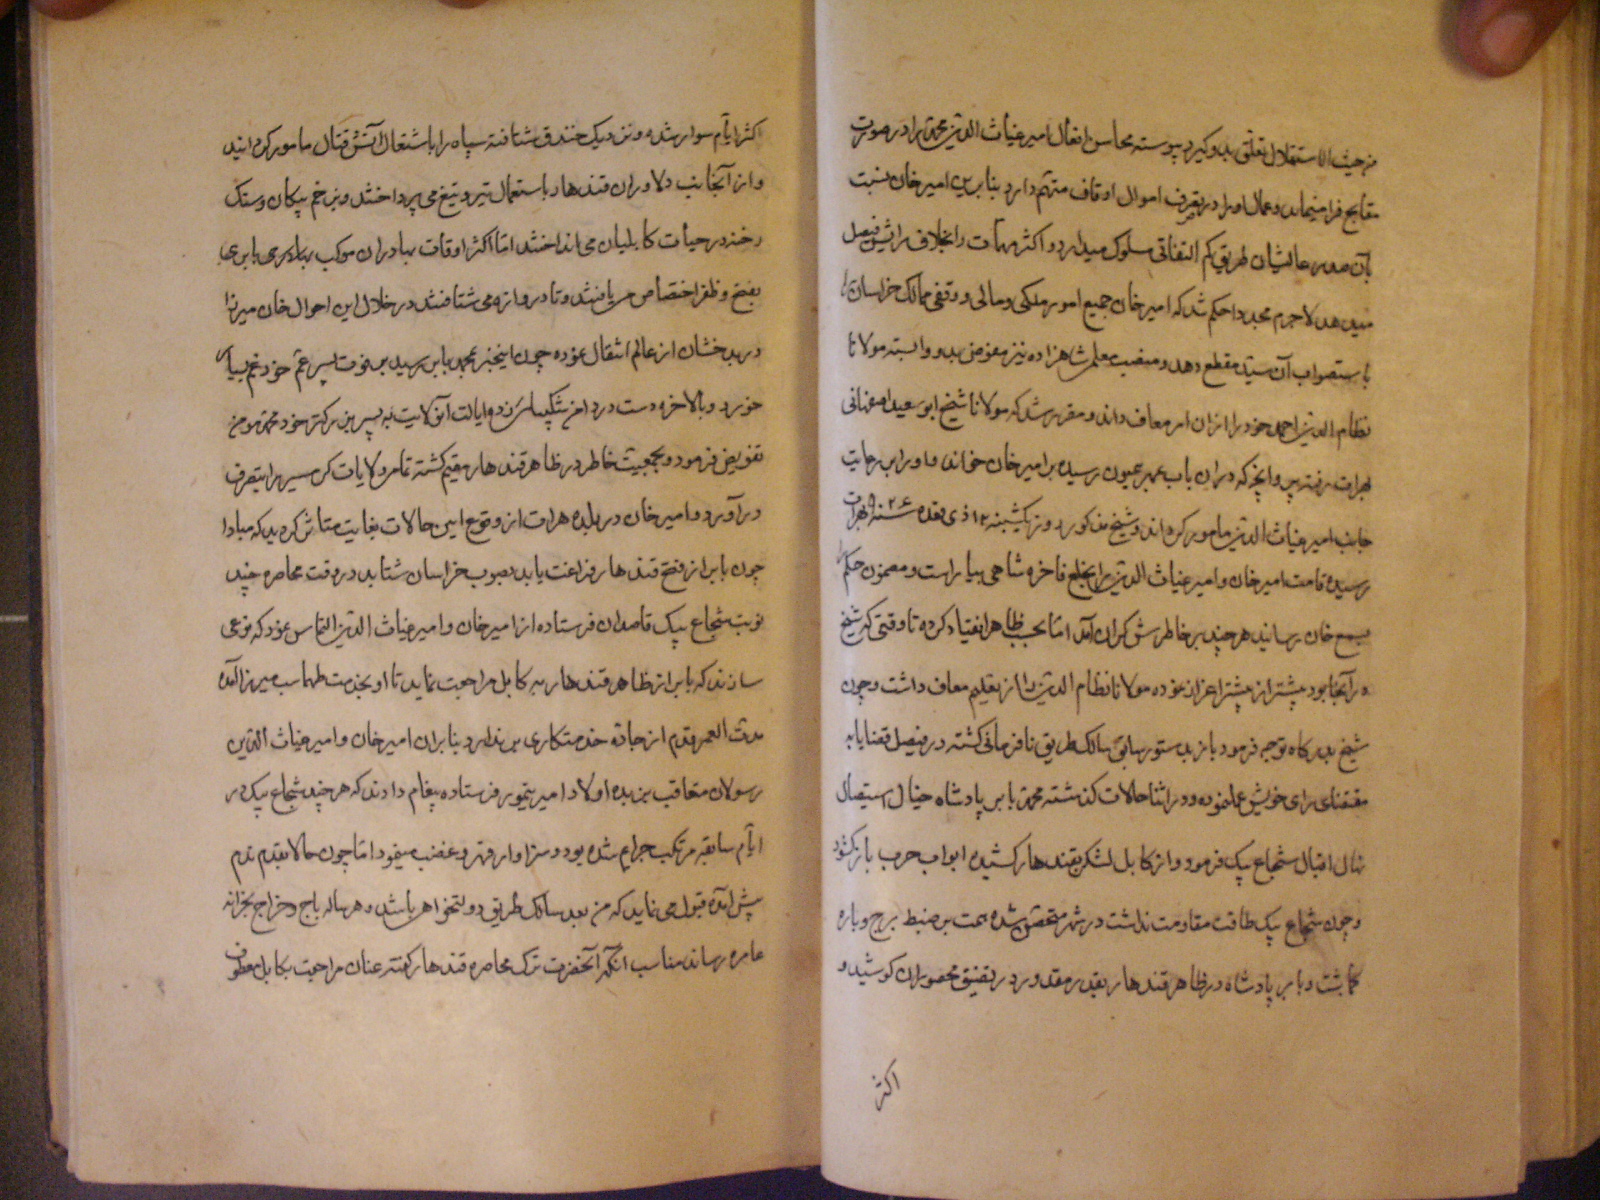 من حیث الاستقلال تعلق بدو گیرد پیوسته محاسن افعال امیر غیاث الدین محمد را در صورت
مقابح فرا مینماید و عمال او را در تصرف اموال اوقاف متهم دارد بنابرین امیر خان نسبت
بآن صدر عالیشان طریق کم التفاتی مسلوک میدارد و اکثر مهمات را بخلاف رأیش فیصل
میدهد لاجرم مجددا حکم شد که امیر خان جمیع امور ملکی و مالی و وقفی ممالک خراسان را
باستصواب آن سید مقطع دهد و منصب معلمی شاهزاده نیز مفوض بدو و وابسته مولانا
نظام الدین احمد خود را ازان امر معاف داند و مقرر شد که مولانا شیخ ابو سعید اصفهانی
بهرات رفته پروانچه که دران باب بمهر همیون رسیده بر امیر خان خواند و او را بر رعایت
جانب امیر غیاث الدین مامور گرداند و شیخ مذکور در روز یکشنبه ۱۲ ذی قعده سنه ۹۲۶ بهرات
رسیده قامت امیر خان و امیر غیاث الدین را بخلع فاخره شاهی بیاراست و مضمون حکم را
بسمع خان رسانید هرچند بر خاطرش گران آمد اما بحسب ظاهر انقیاد کرده تا وقتی که شیخ
در آنجا بود بیشتر از پیشتر اعزاز نموده مولانا نظام الدین را از تعلیم معاف داشت و چون
شیخ بدرگاه توجه فرمود باز بدستور سابق سالک طریق نافرمانی گشته در فیصل قضایا به
مقتضای رای خویش عمل نموده و در اثنا حالات گذشته محمد بابر پادشاه خیال استیصال
نهال اقبال شجاع بیک فرمود و از کابل لشکر بقندهار کشیده ابواب حرب باز گشود
و چون شجاع بیک طاقت مقاومت نداشت در شهر متحصن شده همت بر ضبط برج و باره
گماشت و بابر پادشاه در ظاهر قندهار بقدر مقدور در تضییق محصوران کوشید و
اکثر
اکثر ایام سوار شده و نزدیک خندق شتافته سپاه را باشتعال آتش قتال مامور گردانید
و از آنجانب دلاوران قندهار باستعمال تیر و تیغ می پرداختند و بزخم پیکان و سنک
رخنه در حیات کابلیان می انداختند اما اکثر اوقات بهادران موکب بهادری بابری
بفتح و ظفر اختصاص می یافتند و تا دروازه می شتافتند در خلال این احوال خان میرزا
در بدخشان از عالم انتقال نموده چون اینخبر بمحمد بابر رسید بر فوت پسر عم خود غم بسیار
خورد و بالاخره دست در دامن شکیبائی زده ایالت آنولایت به پسر بزرگتر خود محمد همایون
تفویض فرمود و بجمعیت خاطر در ظاهر قندهار مقیم گشته تمام ولایات گرمسیر را بتصرف
درآورد و امیر خان در بلده هرات از وقوع این حالات بغایت متاثر گردید که مبادا
چون بابر از فتح قندهار فراغت یابد بصوب خراسان شتابد در وقت محاصره چند
نوبت شجاع بیک قاصدان فرستاده از امیر خان و امیر غیاث الدین التماس نمود که نوعی
سازند که بابر از ظاهر قندهار به کابل مراجعت نماید تا او بخدمت طهماسب میرزا آمده
مدت العمر قدم از جاده خدمتکاری بر ندارد بنابران امیر خان و امیر غیاث الدین
رسولان متعاقب بزبده اولاد امیر تیمور فرستاده پیغام دادند که هرچند شجاع بیک در
ایام سابقه مرتکب جرایم شده بود و سزاوار قهر و غضب مینمود اما چون حالا بقدم ندم
پیش آمده قبول می نماید که من بعد سالک طریق دولتخواهی باشد و هر ساله باج و خراج بخزانه
عامره رساند مناسب آنکه آنحضرت ترک محاصره قندهار گفته عنان مراجعت بکابل معطوف